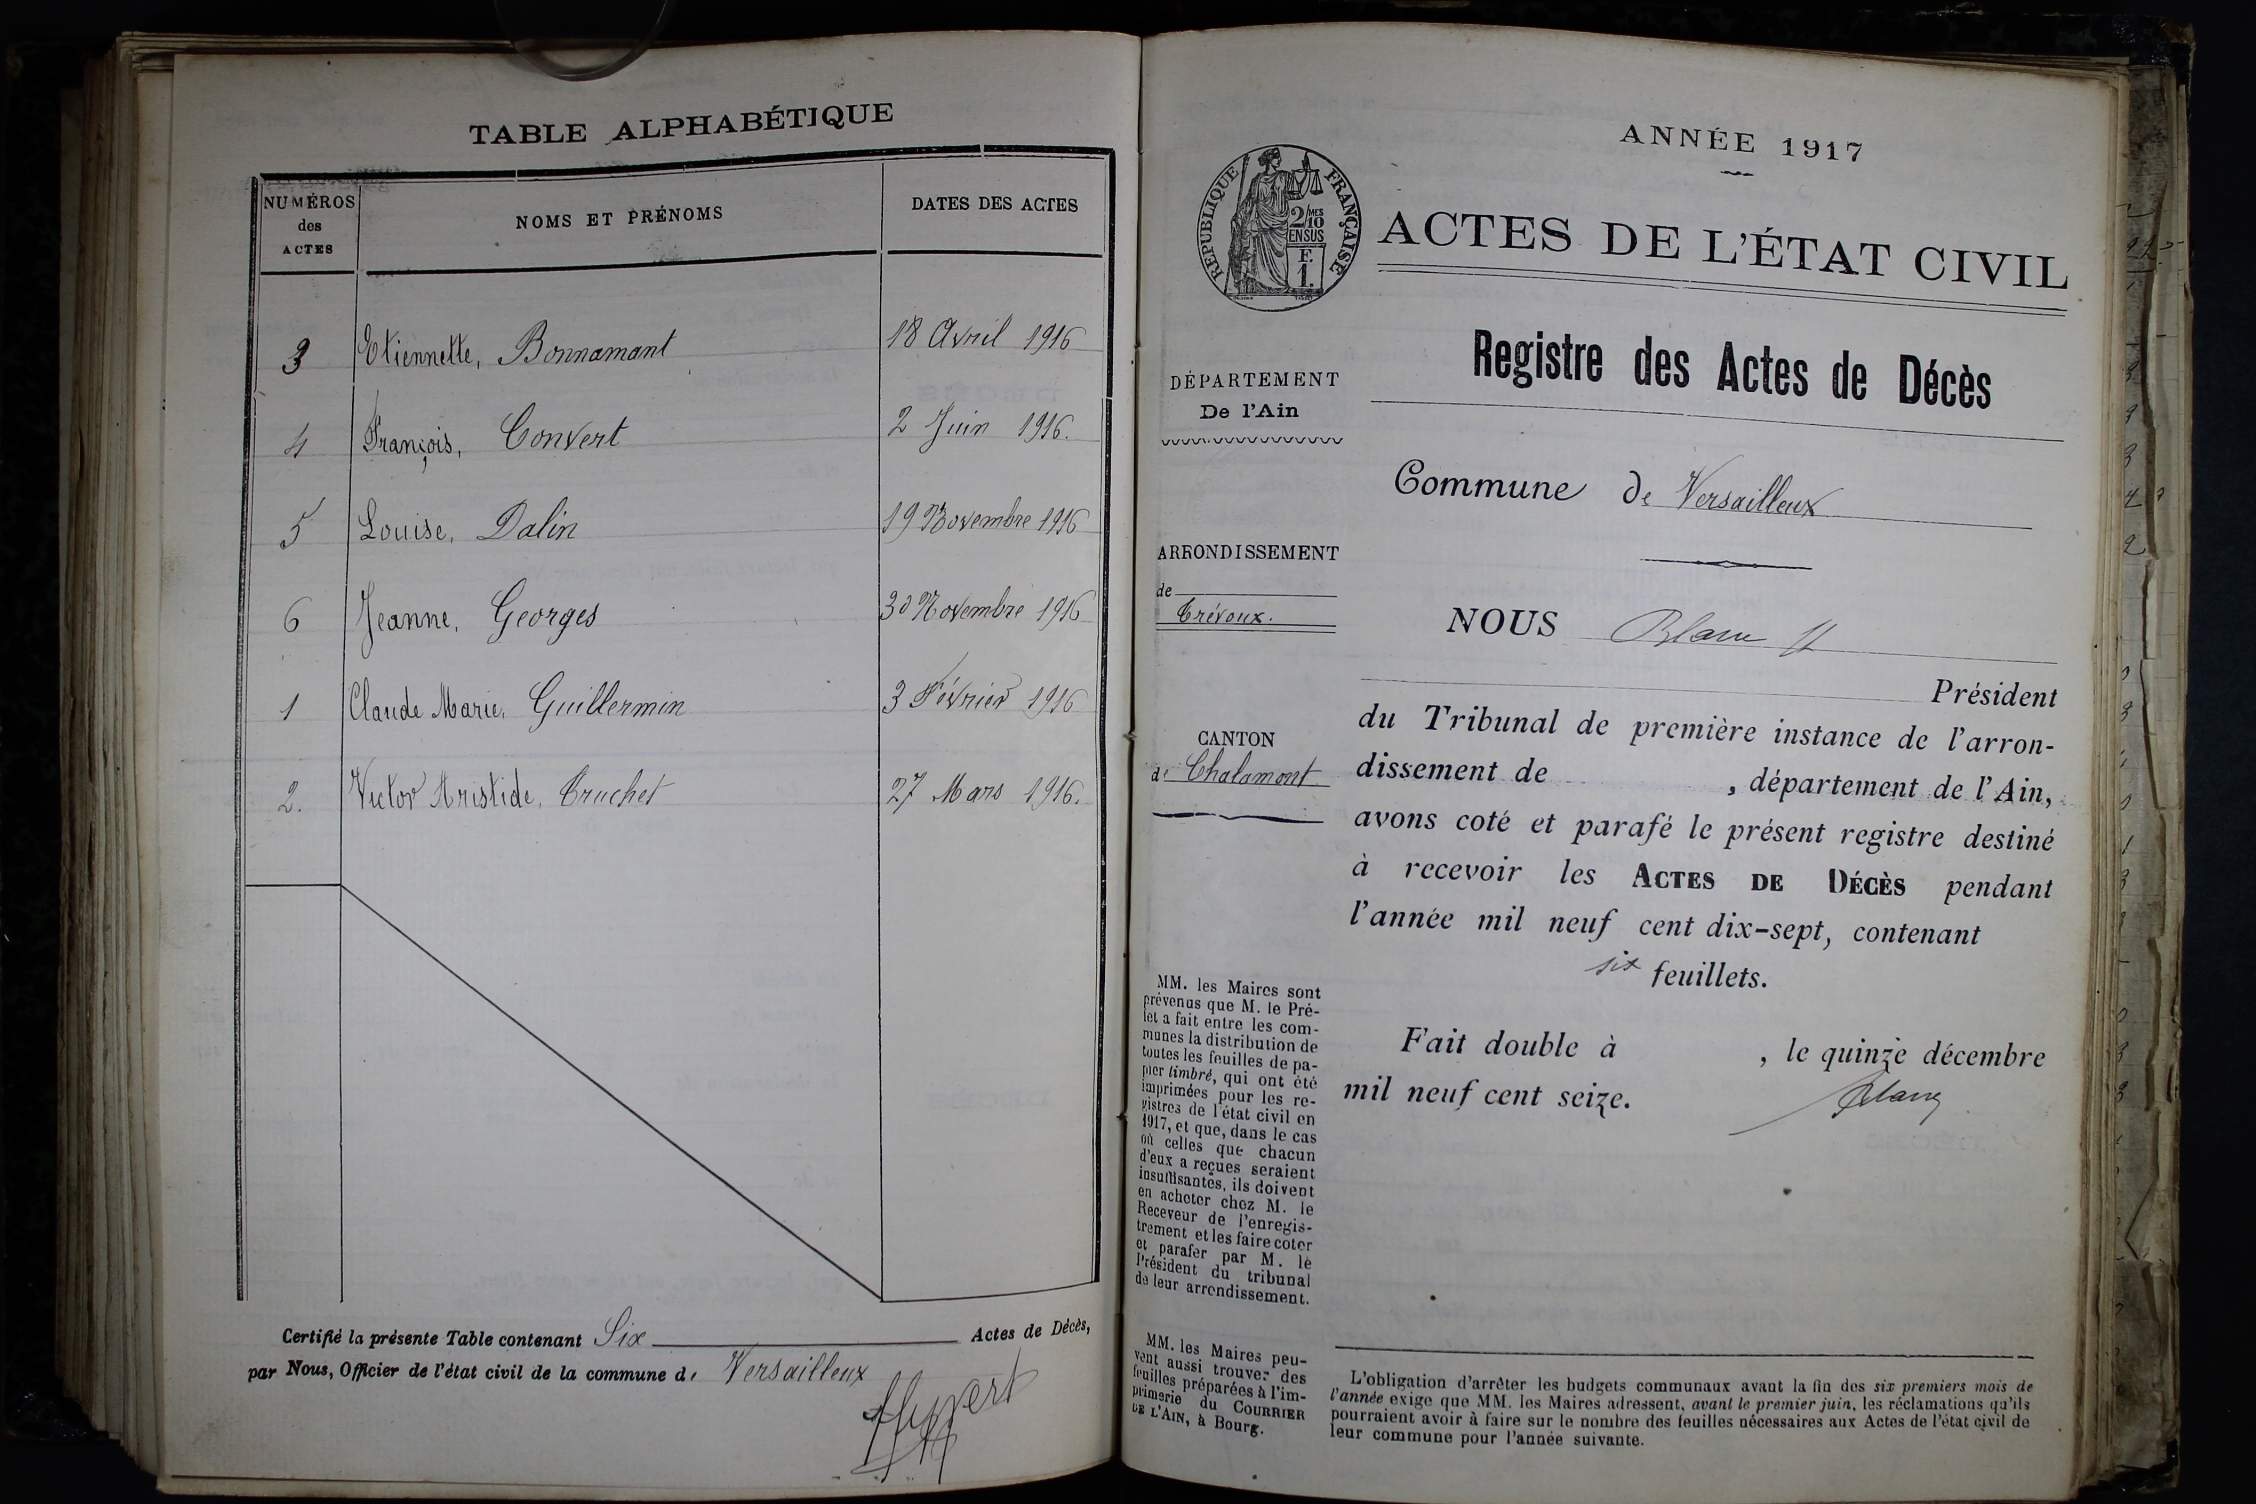 TABLE ALPHABÉTIQUE
NUMÉROS
des
ACTES
NOMS ET PRÉNOMS
DATES DES ACTES
3 Etiennette, Bonnamant 18 Avril 1916
4 François, Convert 2 Juin 1916.
5 Louise, Dalin 19 Novembre 1916
6 Jeanne, Georges 30 Novembre 1916
1 Claude Marie, Guillermin 3 Février 1916
2. Victor Aristide, Truchet 27 Mars 1916.
Certifié la présente Table contenant Six Actes de Décès,
par Nous, Officier de l'état civil de la commune de Versailleux
ANNÉE 1917
RÉPUBLIQUE FRANÇAISE
2/10
MES
EN SUS
F.
1.
ACTES DE L'ÉTAT CIVIL
Registre des Actes de Décès
DÉPARTEMENT
De l'Ain
Commune de Versailleux
ARRONDISSEMENT
de
Trévoux.
CANTON
de Chalamont
NOUS Blanc
Président
du Tribunal de première instance de l'arron-
dissement de , département de l'Ain,
avons coté et parafé le présent registre destiné
à recevoir les ACTES DE DÉCÈS pendant
l'année mil neuf cent dix-sept, contenant
six feuillets.
Fait double à , le quinze décembre
mil neuf cent seize.
Blanc
MM. les Maires sont
prévenus que M. le Pré-
fet a fait entre les com-
munes la distribution de
toutes les feuilles de pa-
pier timbré, qui ont été
imprimées pour les re-
gistres de l'état civil en
1917, et que, dans le cas
où celles que chacun
d'eux a reçues seraient
insuffisantes, ils doivent
en acheter chez M. le
Receveur de l'enregis-
trement et les faire coter
et parafer par M. le
Président du tribunal
de leur arrondissement.
MM. les Maires peu-
vent aussi trouver des
feuilles préparées à l'im-
primerie du COURRIER
DE L'AIN, à Bourg.
L'obligation d'arrêter les budgets communaux avant la fin des six premiers mois de
l'année exige que MM. les Maires adressent, avant le premier juin, les réclamations qu'ils
pourraient avoir à faire sur le nombre des feuilles nécessaires aux Actes de l'état civil de
leur commune pour l'année suivante.